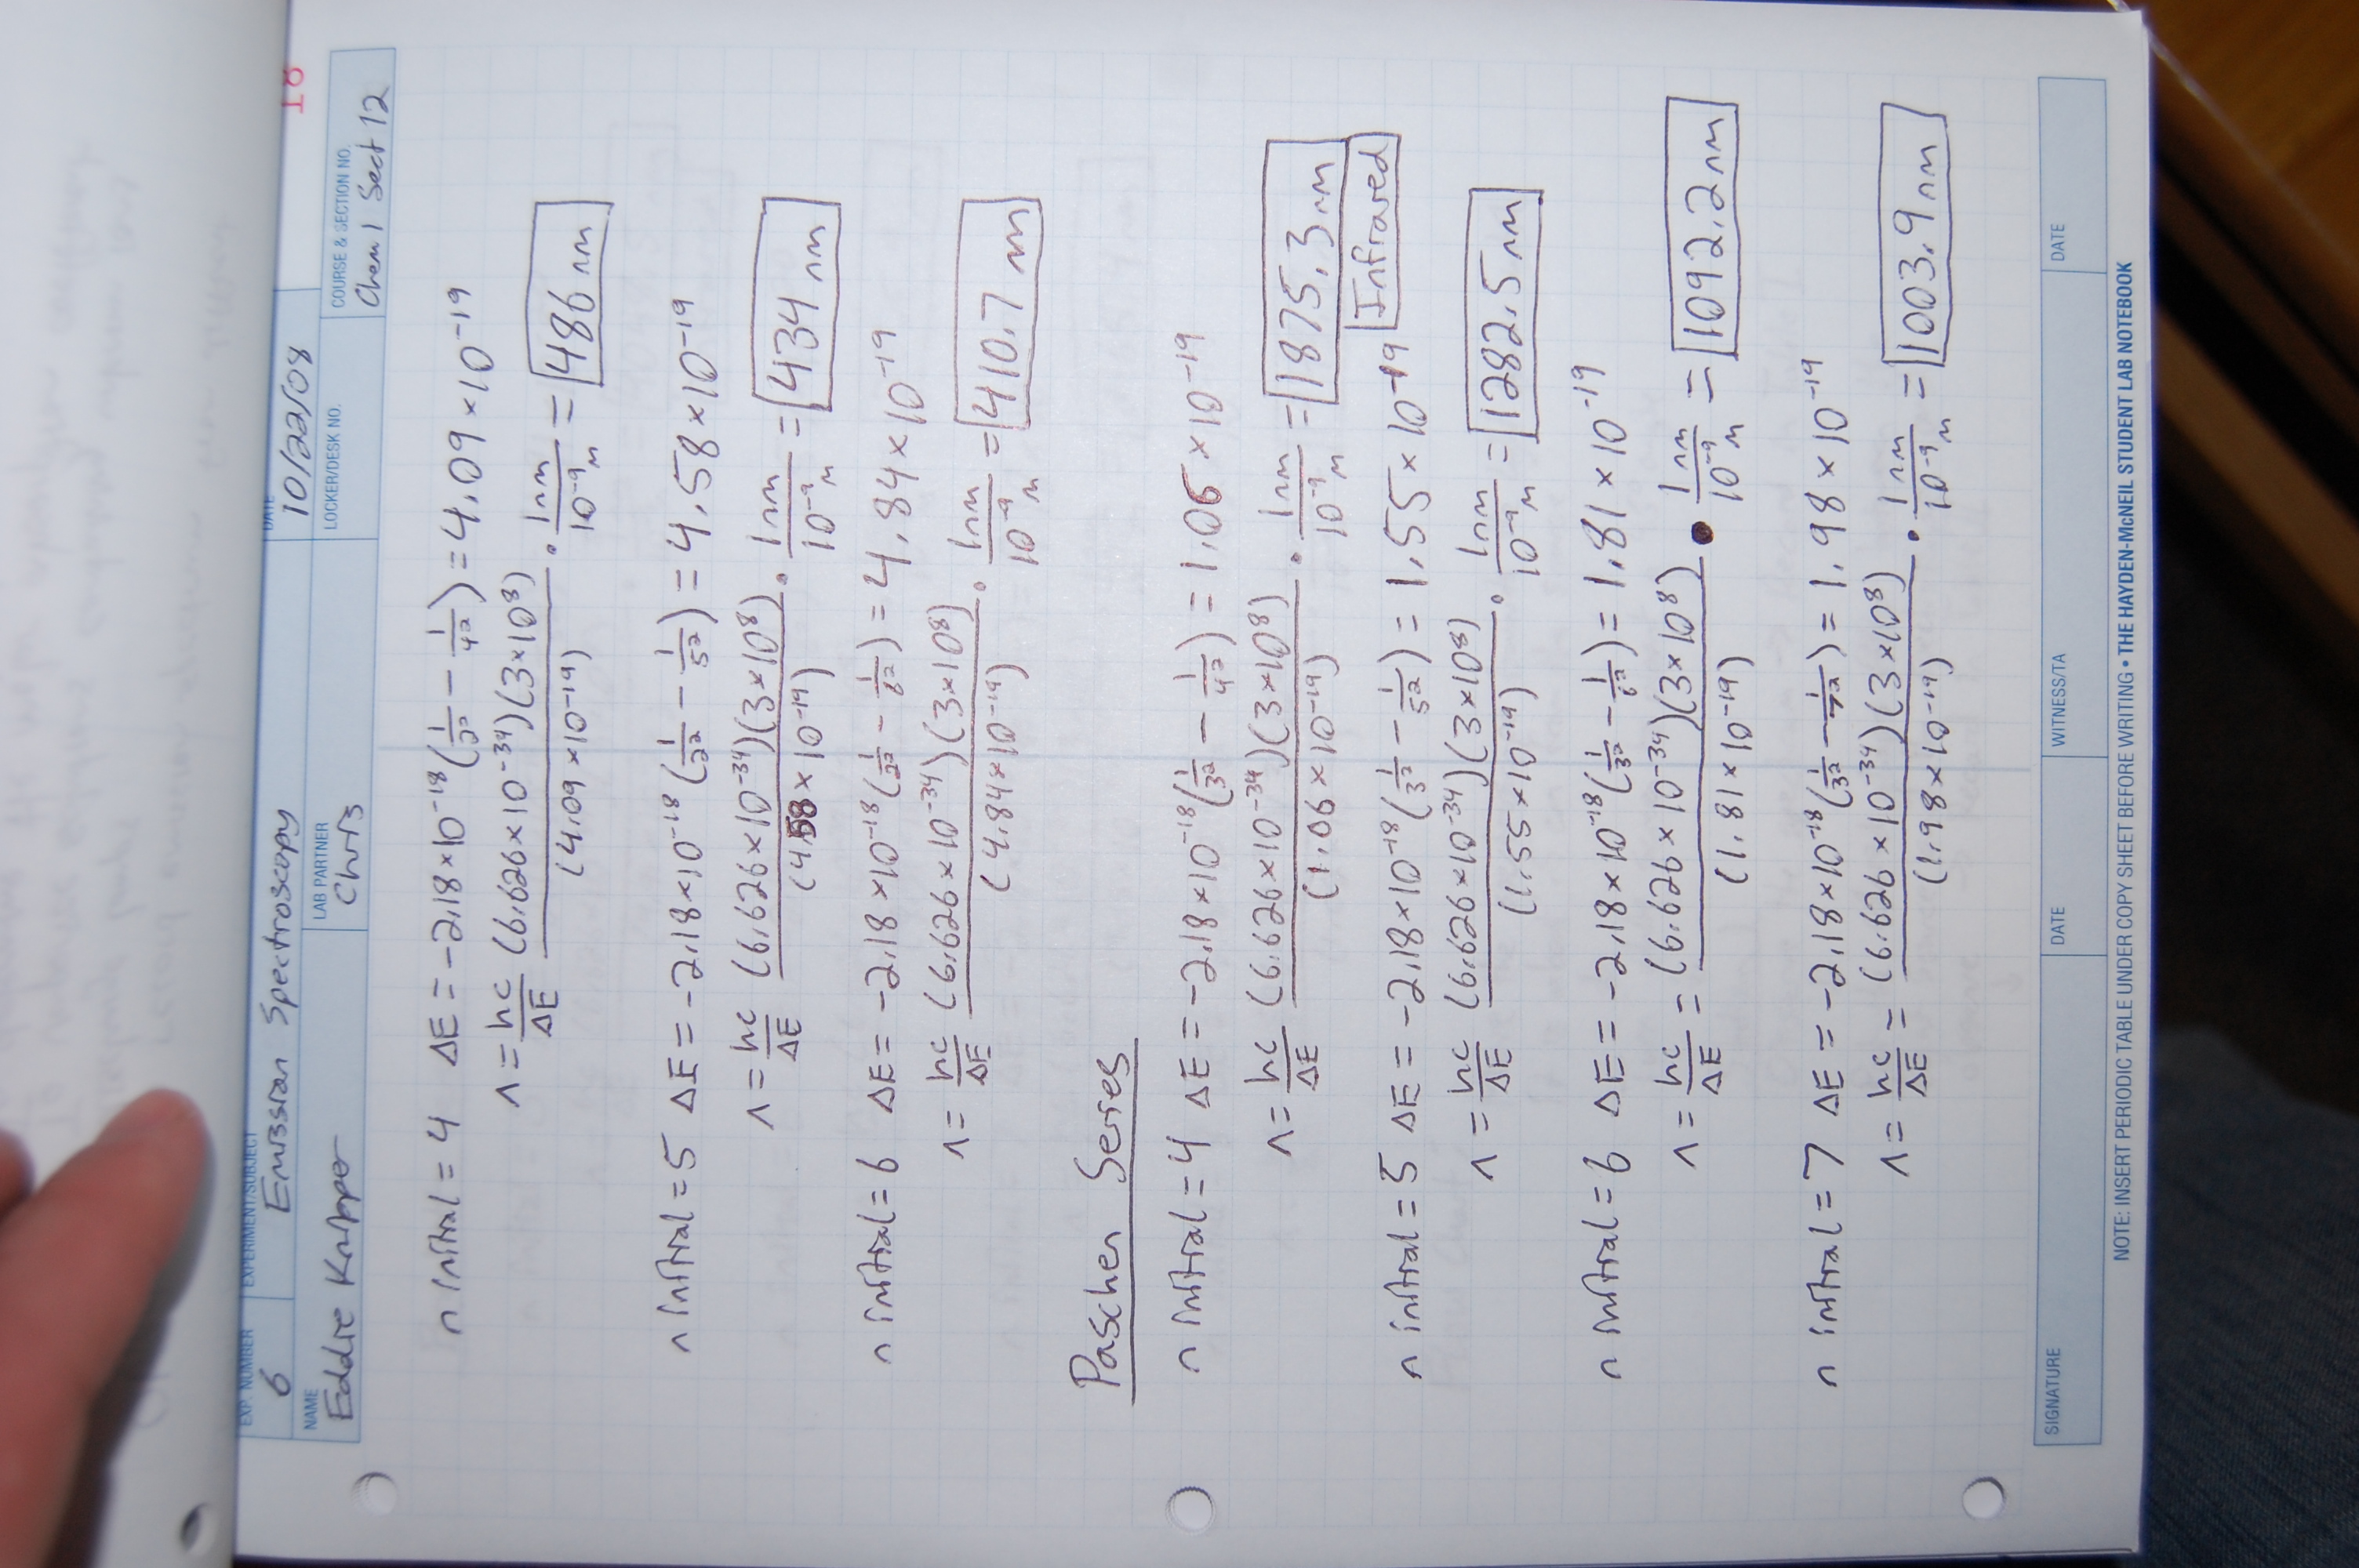 18
EXP. NUMBER EXPERIMENT/SUBJECT DATE
6 Emission Spectroscopy 10/22/08
NAME LAB PARTNER LOCKER/DESK NO. COURSE & SECTION NO.
Eddie Knipper Chris Chem 1 Sect 12
n initial = 4 ΔE = -2.18×10⁻¹⁸(1/2² - 1/4²) = 4.09×10⁻¹⁹
λ = hc/ΔE (6.626×10⁻³⁴)(3×10⁸)/(4.09×10⁻¹⁹) · 1nm/10⁻⁹m = 486 nm
n initial = 5 ΔE = -2.18×10⁻¹⁸(1/2² - 1/5²) = 4.58×10⁻¹⁹
λ = hc/ΔE (6.626×10⁻³⁴)(3×10⁸)/(4.58×10⁻¹⁹) · 1nm/10⁻⁹m = 434 nm
n initial = 6 ΔE = -2.18×10⁻¹⁸(1/2² - 1/6²) = 4.84×10⁻¹⁹
λ = hc/ΔE (6.626×10⁻³⁴)(3×10⁸)/(4.84×10⁻¹⁹) · 1nm/10⁻⁹m = 410.7 m
Paschen Series
n initial = 4 ΔE = -2.18×10⁻¹⁸(1/3² - 1/4²) = 1.06×10⁻¹⁹
λ = hc/ΔE (6.626×10⁻³⁴)(3×10⁸)/(1.06×10⁻¹⁹) · 1nm/10⁻⁹m = 1875.3 nm
Infrared
n initial = 5 ΔE = -2.18×10⁻¹⁸(1/3² - 1/5²) = 1.55×10⁻¹⁹
λ = hc/ΔE (6.626×10⁻³⁴)(3×10⁸)/(1.55×10⁻¹⁹) · 1nm/10⁻⁹m = 1282.5 nm
n initial = 6 ΔE = -2.18×10⁻¹⁸(1/3² - 1/6²) = 1.81×10⁻¹⁹
λ = hc/ΔE = (6.626×10⁻³⁴)(3×10⁸)/(1.81×10⁻¹⁹) · 1nm/10⁻⁹m = 1092.2 nm
n initial = 7 ΔE = -2.18×10⁻¹⁸(1/3² - 1/7²) = 1.98×10⁻¹⁹
λ = hc/ΔE = (6.626×10⁻³⁴)(3×10⁸)/(1.98×10⁻¹⁹) · 1nm/10⁻⁹m = 1003.9 nm
SIGNATURE DATE WITNESS/TA DATE
NOTE: INSERT PERIODIC TABLE UNDER COPY SHEET BEFORE WRITING • THE HAYDEN-McNEIL STUDENT LAB NOTEBOOK